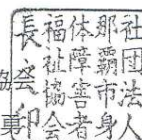 社団法人
那覇市身
体障害者
福祉協会
長印